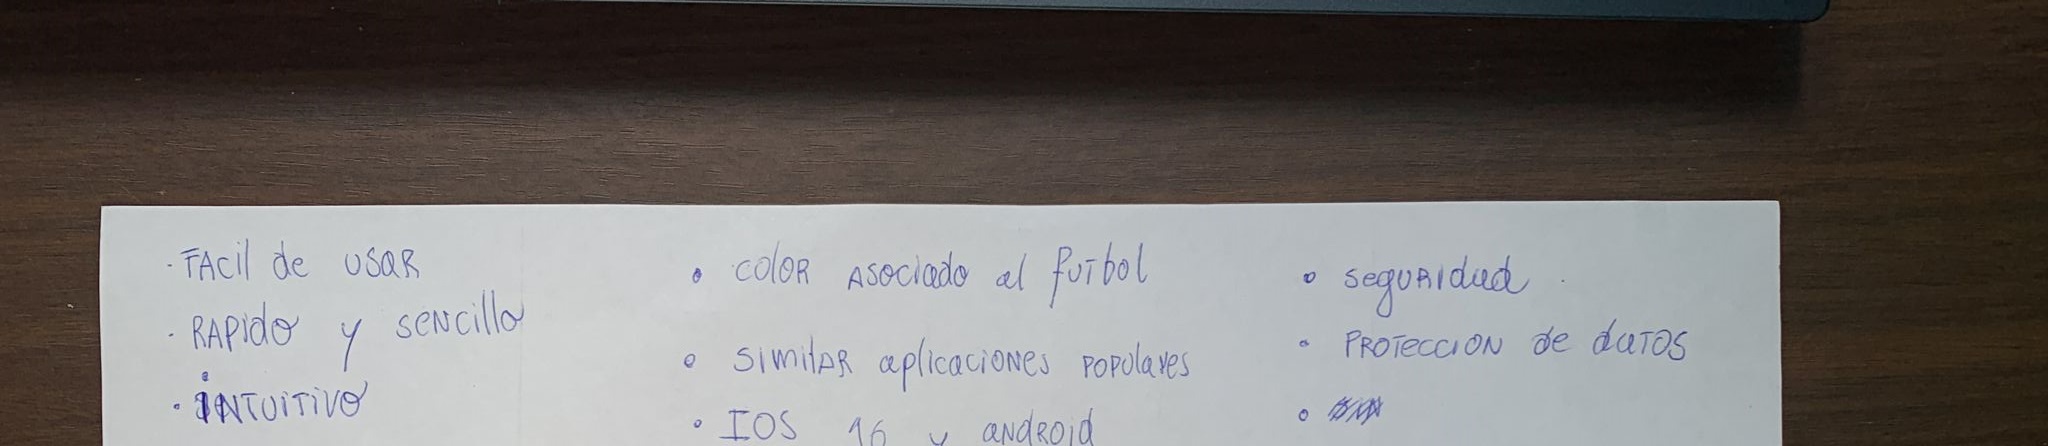 · FAcil de USAR
· RAPido y SENcillo
· iNTUiTiVo
• color Asociado al futbol
• SimilAR aplicaciones populares
• IOS 16 y android
• seguridad
• PROTECCION de datos